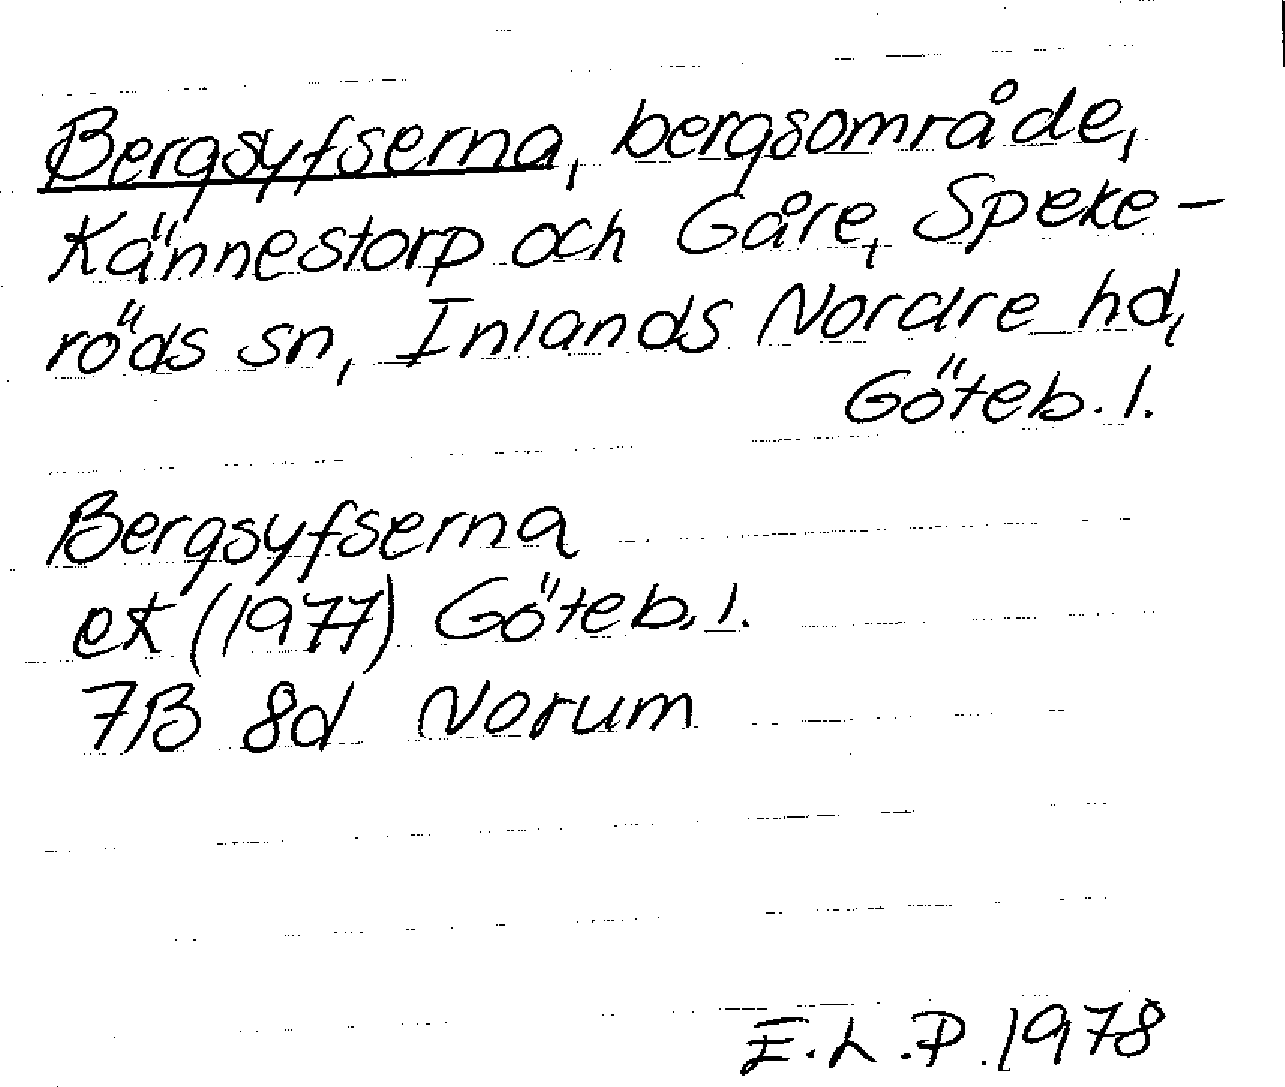 Bergsyfserna, bergsområde,
Kännestorp och Gåre, Speke-
röds sn, Inlands Nordre hd,
Göteb. l.
Bergsyfserna
ek (1977) Göteb. l.
7B 8d Norum
E.L.P. 1978